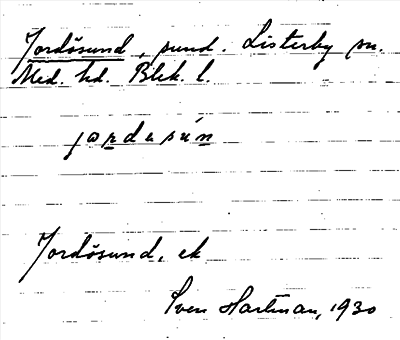 Jordösund, sund. Listerby sn.
Med. hd. Blek. l.
jordusún
Jordösund, ek
Sven Hartman, 1930